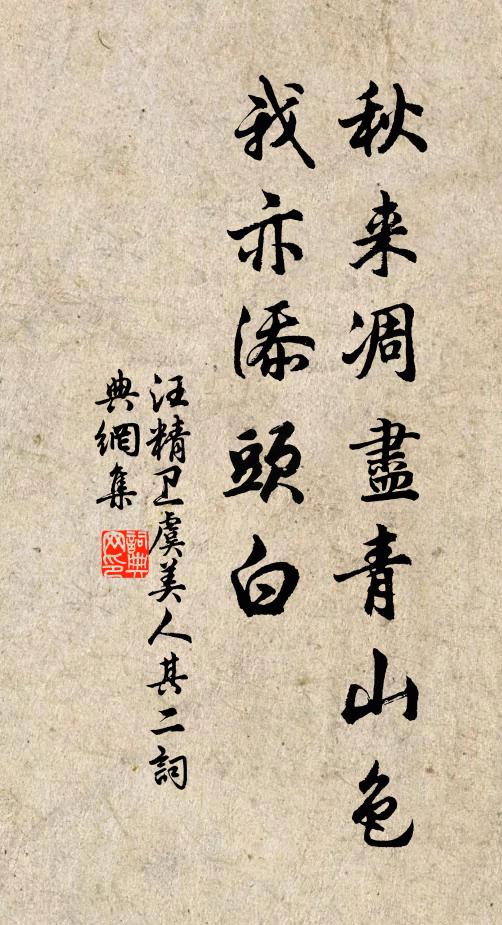 秋来凋盡青山色
我亦添頭白
汪精卫虞美人其二詞
典網集
詞典网印